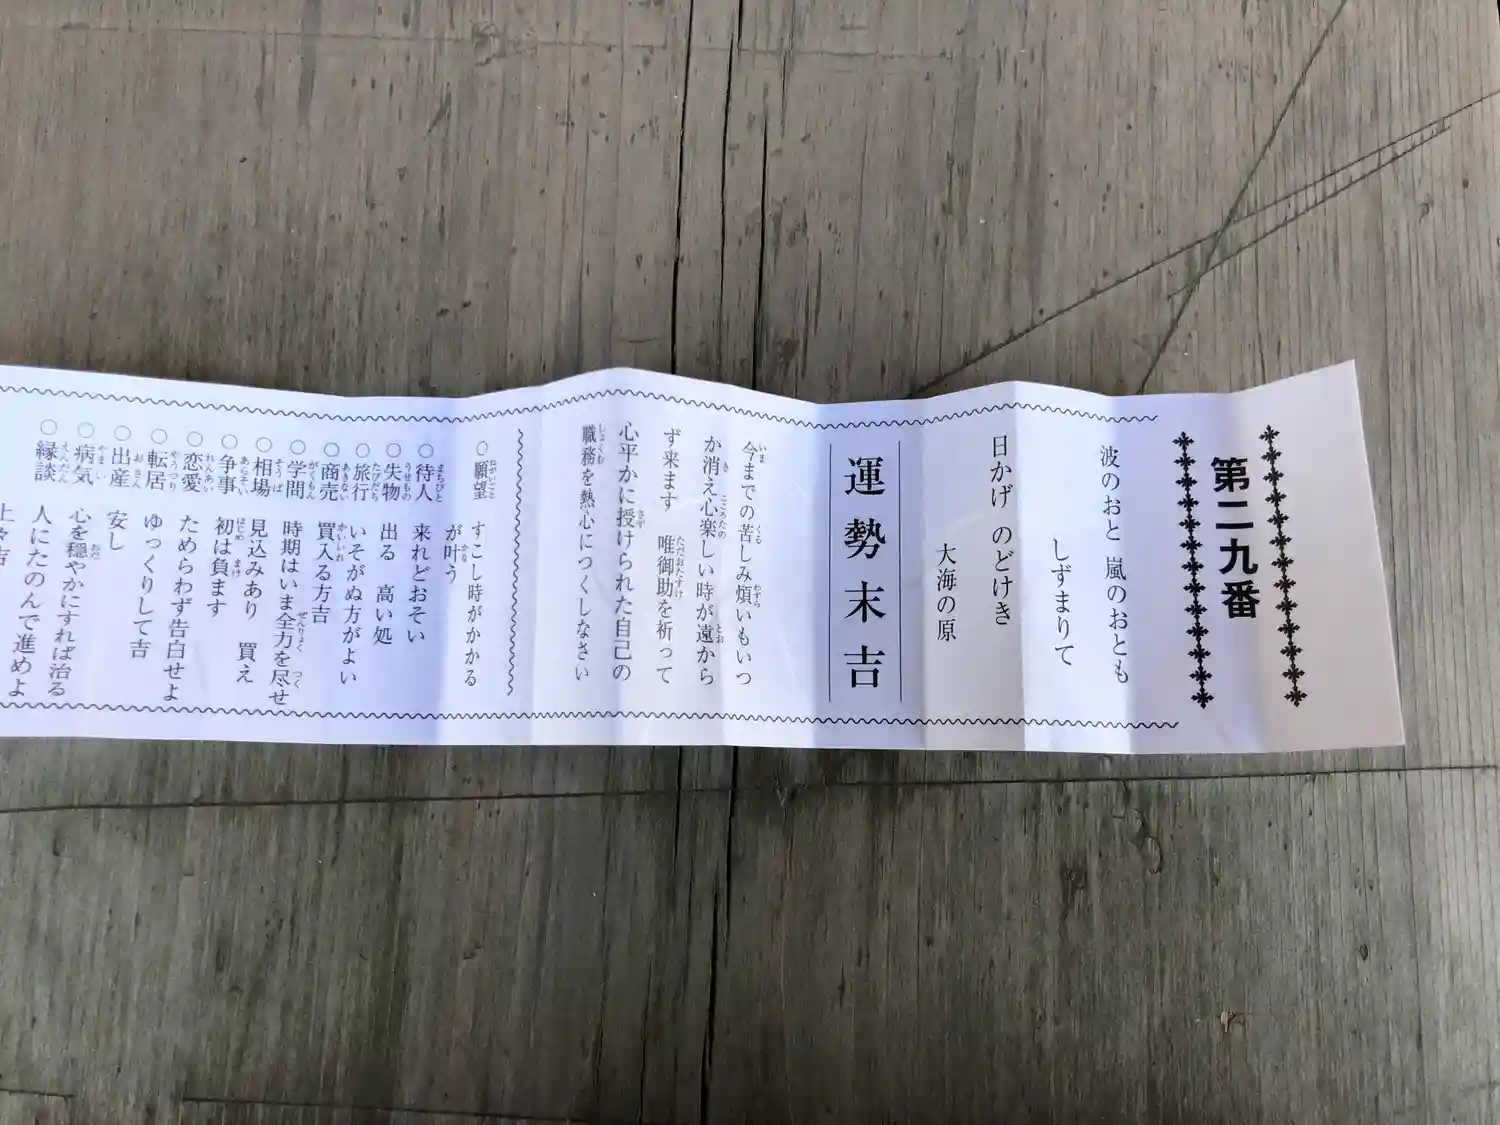 第二九番
波のおと 嵐のおとも
しずまりて
日かげ のどけき
大海の原
運勢末吉
今までの苦しみ煩いもいつ
か消え心楽しい時が遠から
ず来ます 唯御助を祈って
心平かに授けられた自己の
職務を熱心につくしなさい
○願望 すこし時がかかる
が叶う
○待人 来れどおそい
○失物 出る 高い処
○旅行 いそがぬ方がよい
○商売 買入る方吉
○学問 時期はいま全力を尽せ
○相場 見込みあり 買え
○争事 初は負ます
○恋愛 ためらわず告白せよ
○転居 ゆっくりして吉
○出産 安し
○病気 心を穏やかにすれば治る
○縁談 人にたのんで進めよ
上々吉